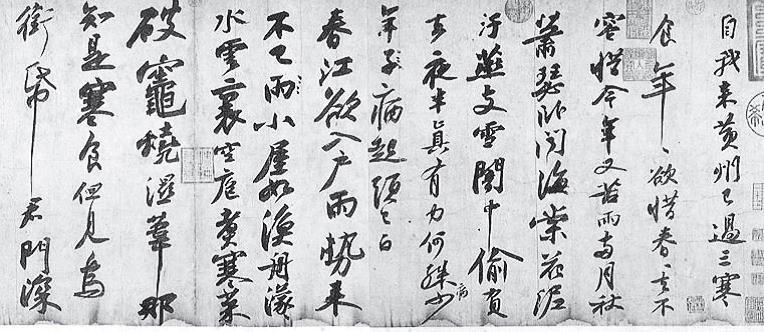 自我来黄州已過三寒
食年〻欲惜春〻去不
容惜今年又苦雨兩月秋
蕭瑟卧聞海棠花泥
汙燕支雪闇中偷負
去夜半真有力何殊病少
年子病起頭已白
春江欲入户雨勢来
不已雨小屋如漁舟濛〻
水雲裏空庖煮寒菜
破竈燒濕葦那
知是寒食但見烏
銜帋君門深